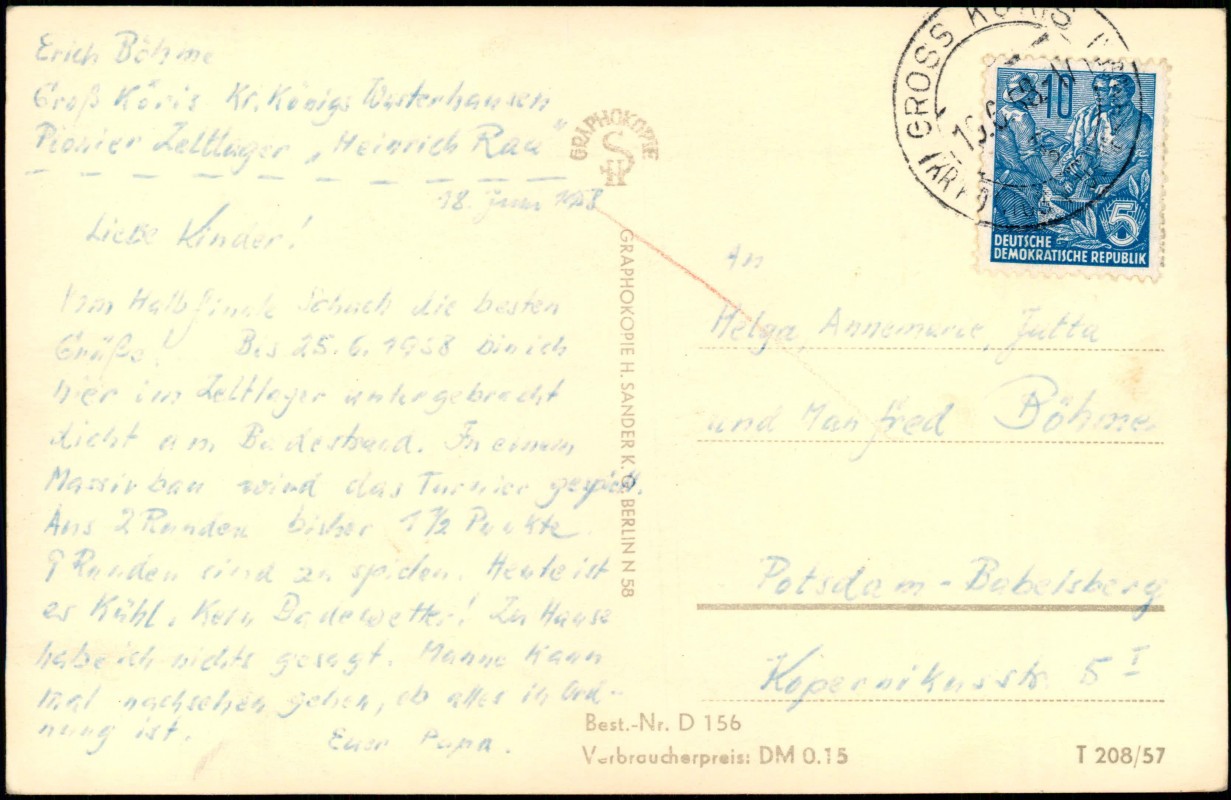 Erich Böhme
Groß Köris Kr. Königs Wusterhausen
Pionier Zeltlager „Heinrich Rau"
18. Juni 1958
Liebe Kinder!
Vom Halbfinale Schach die besten
Grüße! Bis 25.6.1958 bin ich
hier im Zeltlager untergebracht
dicht am Badestrand. In einem
Massivbau wird das Turnier gespielt.
Aus 2 Runden bisher 1 1/2 Punkte.
9 Runden sind zu spielen. Heute ist
es Kühl. Kein Badewetter! Zu Hause
habe ich nichts gesagt. Manne kann
mal nachsehen gehen, ob alles in Ord-
nung ist.
Euer Papa.
GRAPHOKOPIE
GRAPHOKOPIE H. SANDER K.G. BERLIN N 58
GROSS KÖRIS
10
5
DEUTSCHE
DEMOKRATISCHE REPUBLIK
An
Helga, Annemarie, Jutta
und Manfred Böhme
Potsdam-Babelsberg
Kopernikusstr. 5 I
Best.-Nr. D 156
Verbraucherpreis: DM 0.15
T 208/57